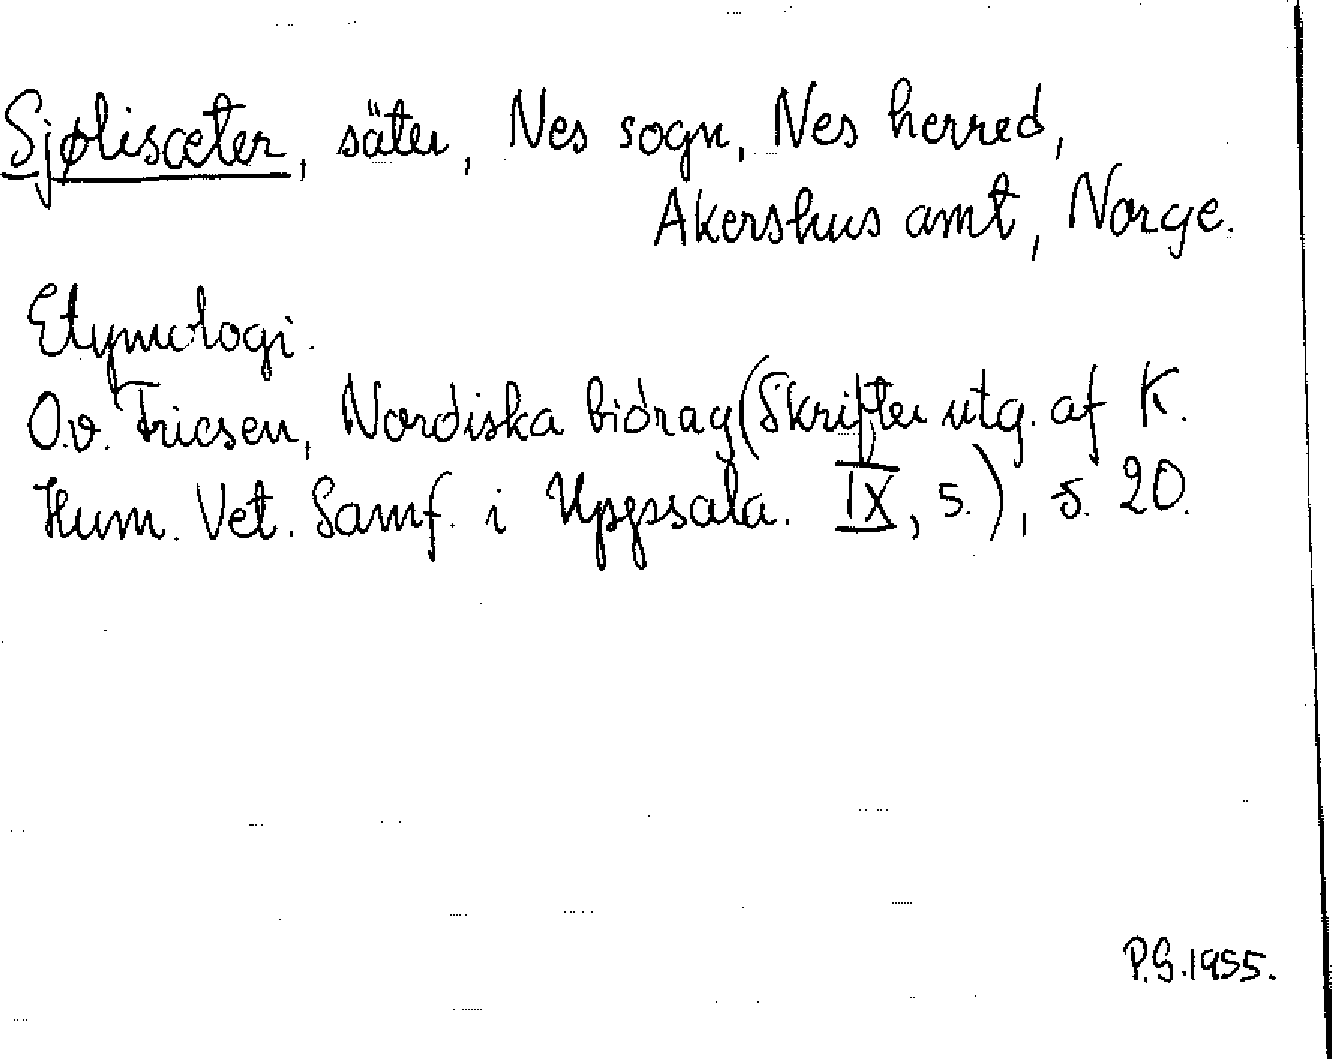 Sjølisæter, säter, Nes sogn, Nes herred,
Akershus amt, Norge.
Etymologi.
O.v. Friesen, Nordiska bidrag (Skrifter utg. af K.
Hum. Vet. Samf. i Uppsala. IX, 5.), s. 20.
P.G. 1955.